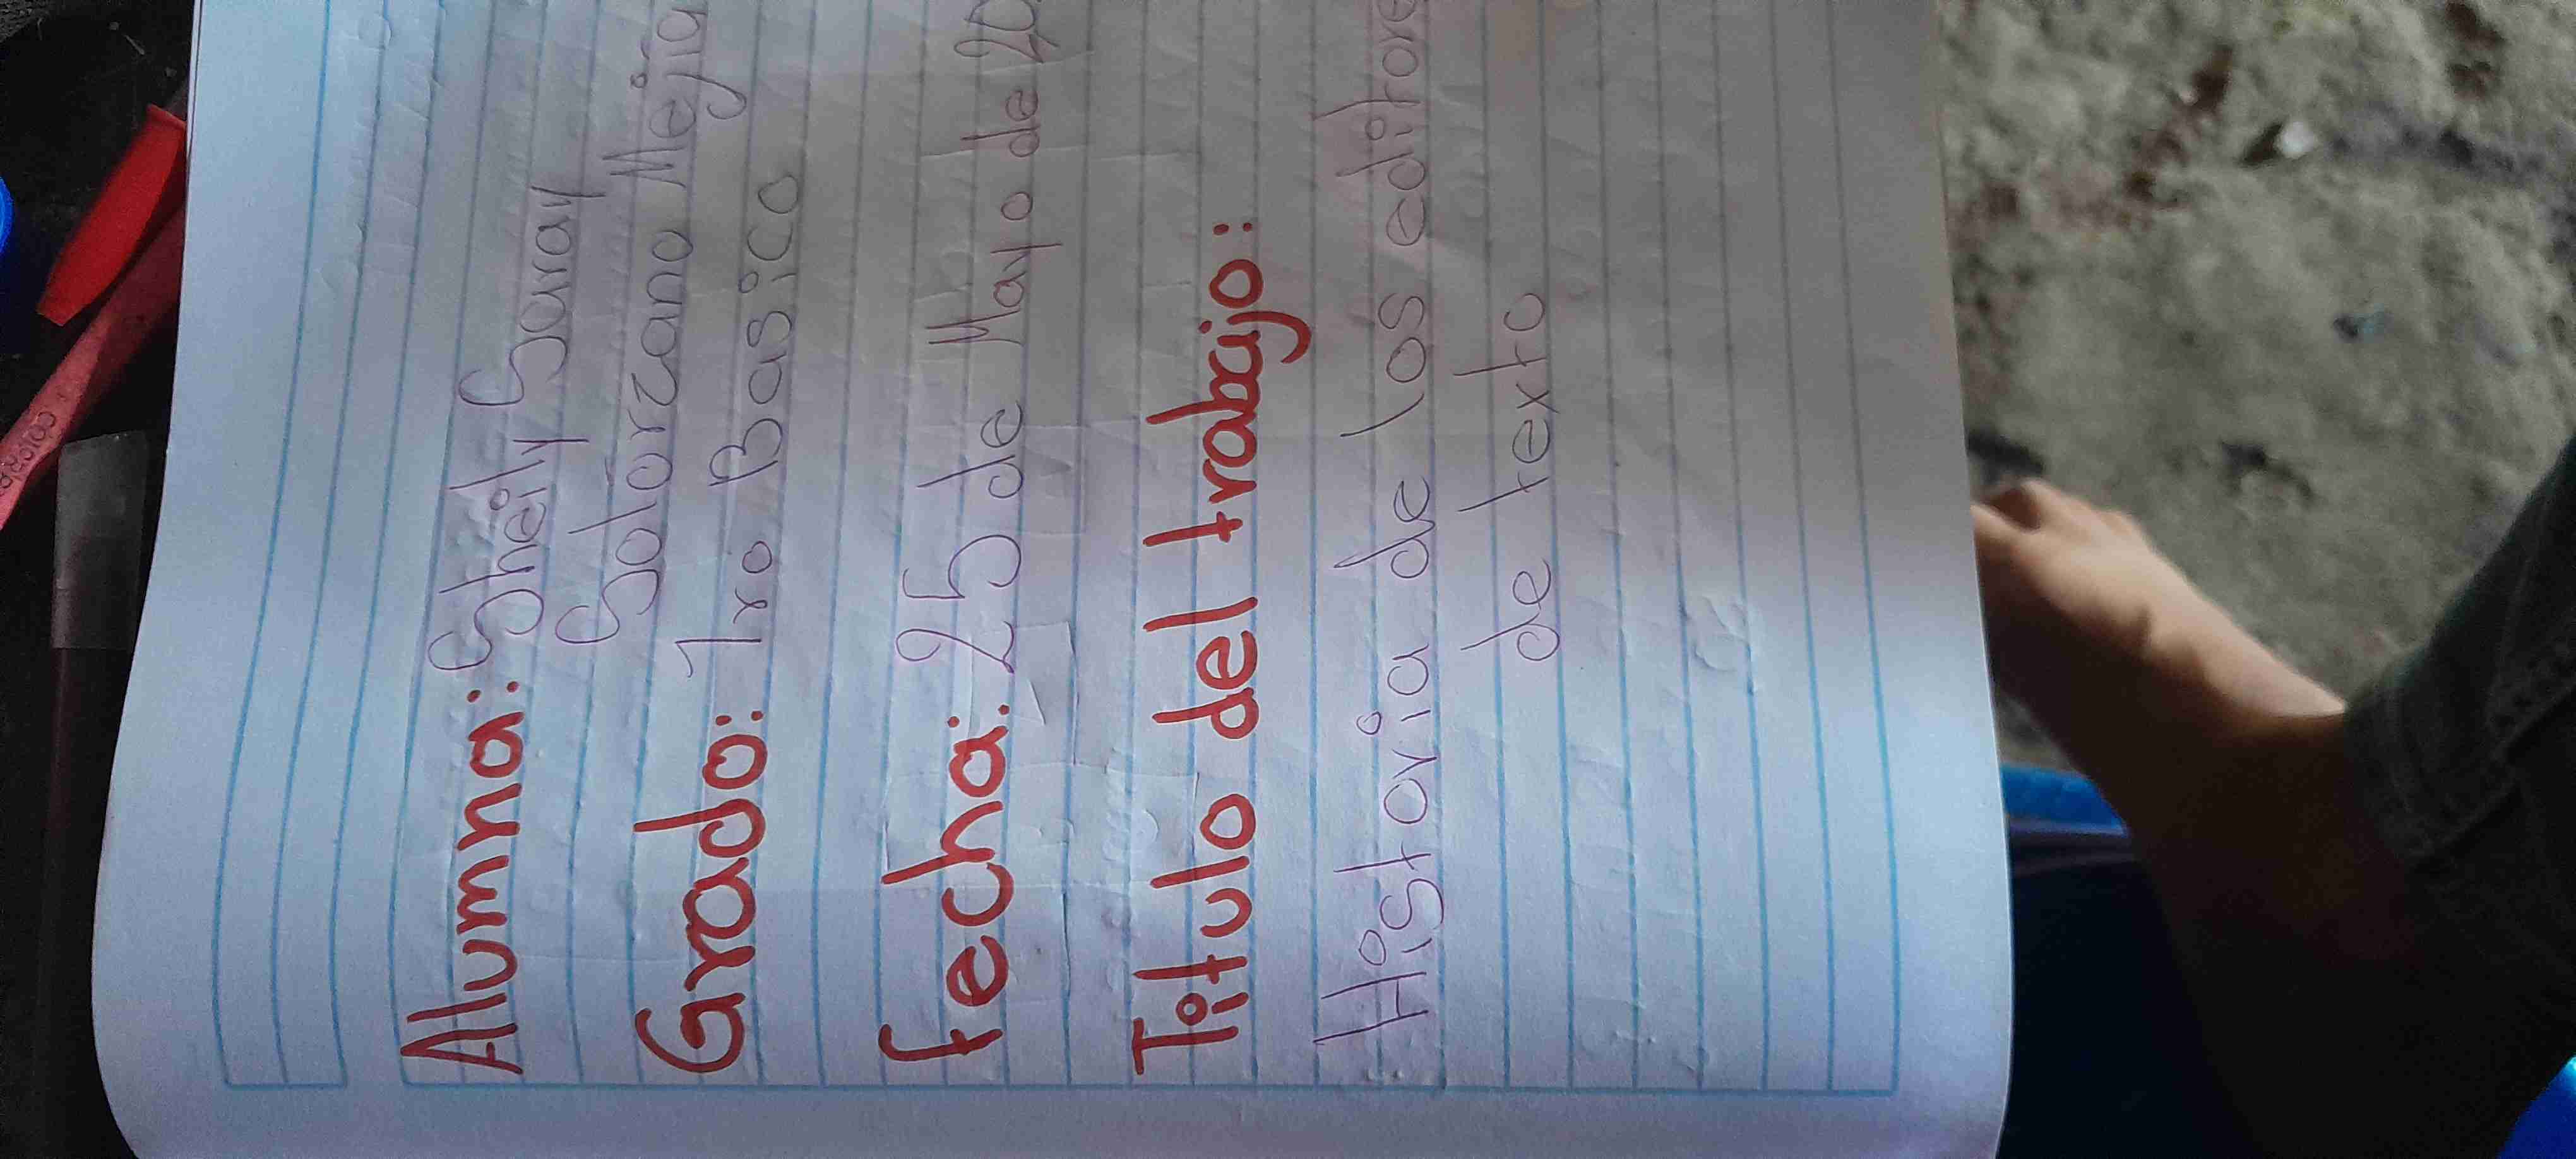 Alumna: Sheily Saray
Solorzano Mejia
Grado: 1ro Basico
fecha: 25 de Mayo de 20
Titulo del trabajo:
Historia de los editore
de texto